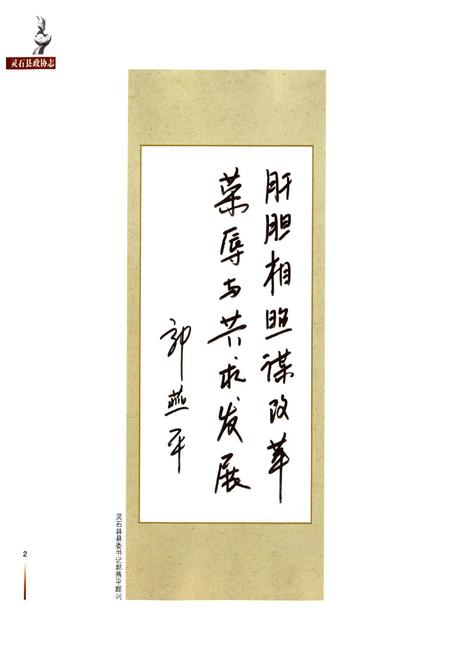 灵石县政协志
肝胆相照谋改革
荣辱与共求发展
郭燕平
灵石县县委书记郭燕平题词
2